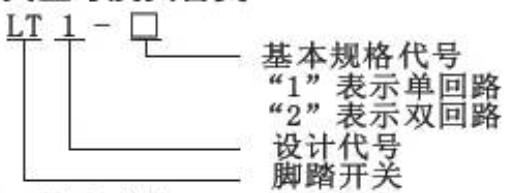 LT 1 - □
基本规格代号
“1”表示单回路
“2”表示双回路
设计代号
脚踏开关